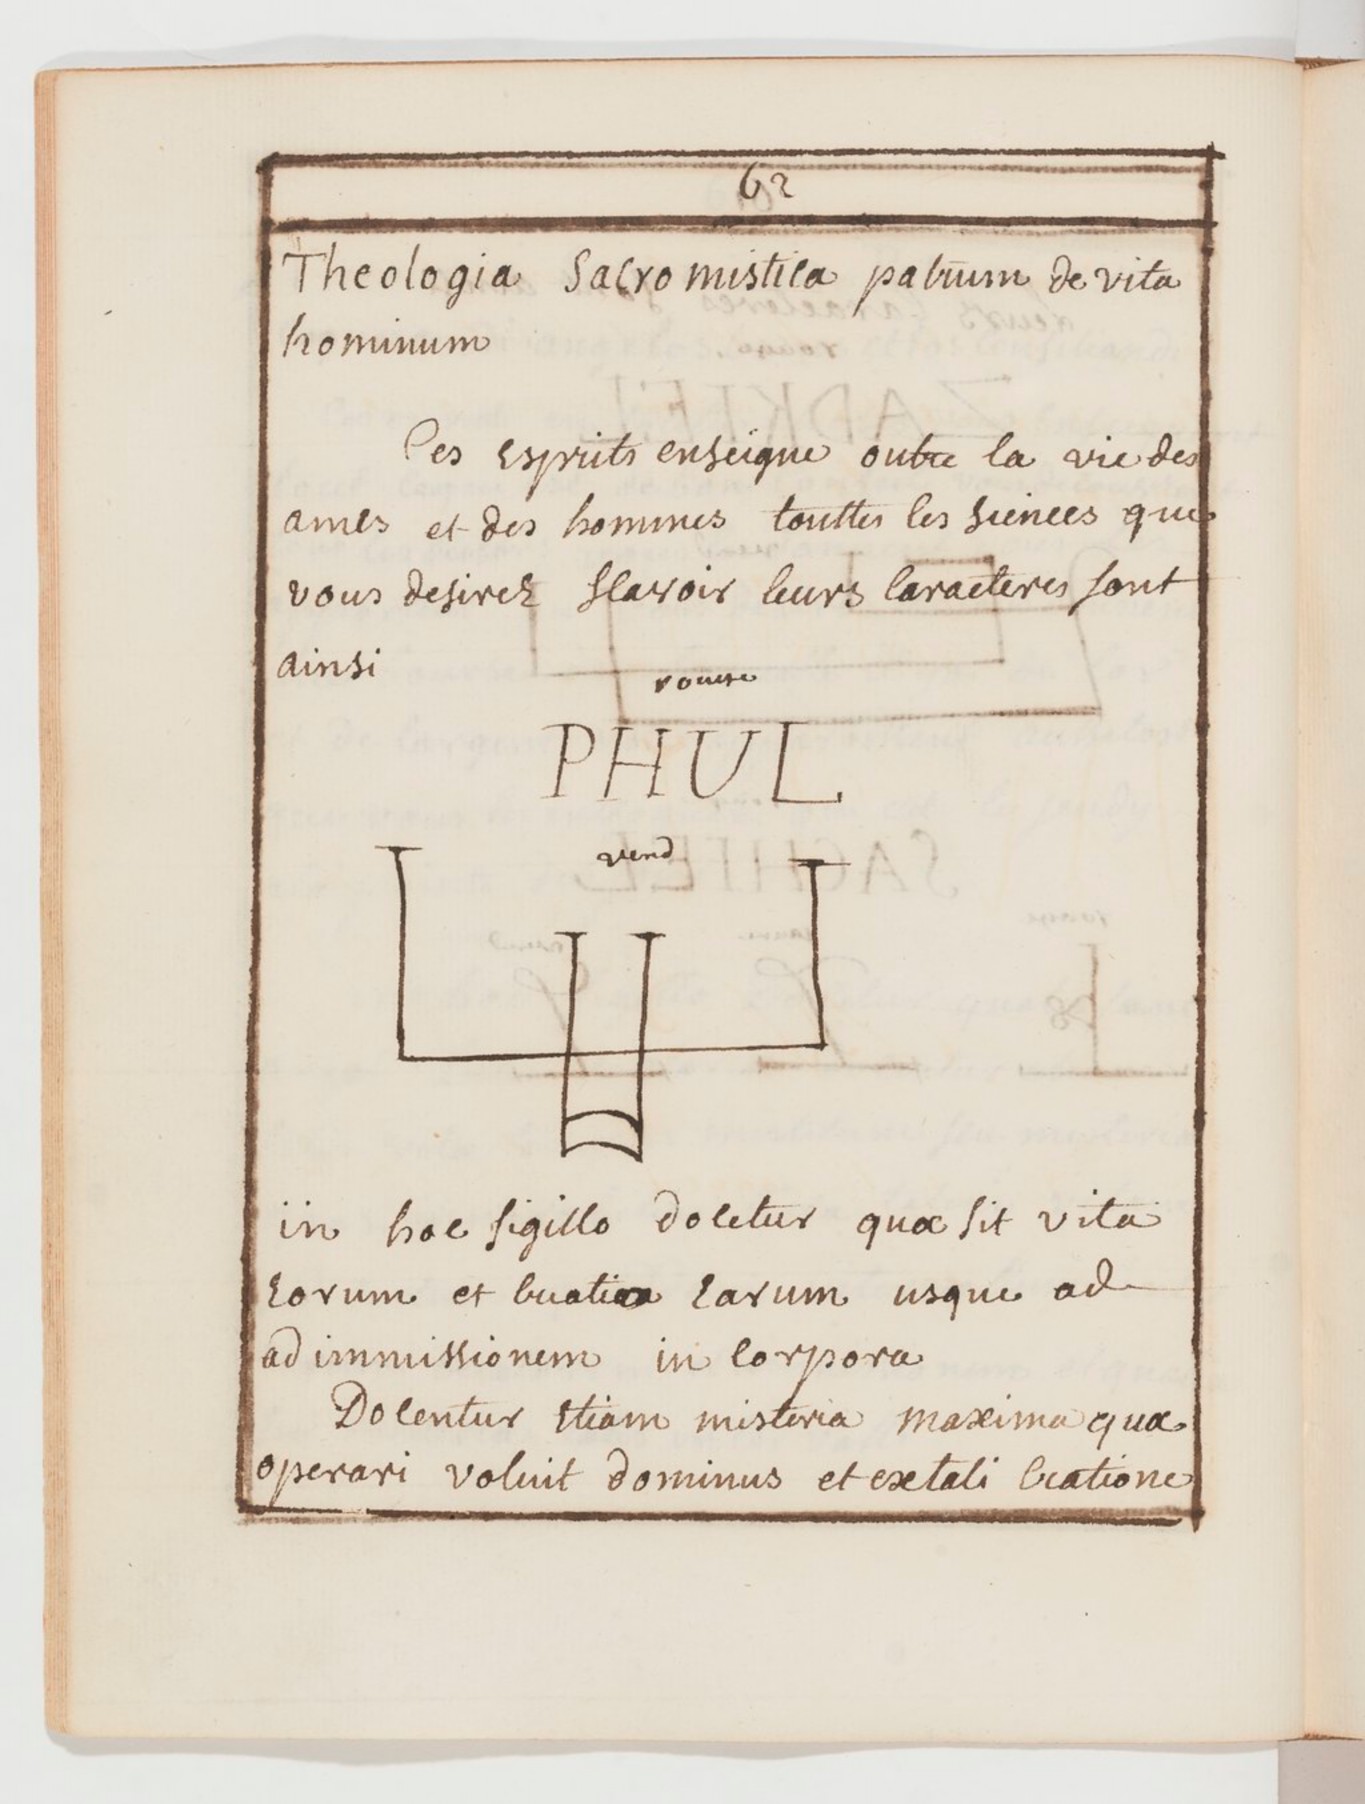 62
Theologia Sacro mistica patrum de vita
hominum
Ces esprits enseigne outre la vie des
ames et des hommes touttes les siences que
vous desirez scavoir leurs caracteres sont
ainsi
rouge
PHUL
verd
in hoc sigillo docetur quæ sit vita
eorum et earum usque ad
ad immissionem in corpora
Docentur etiam misteria maxima quæ
operari voluit dominus et ex tali